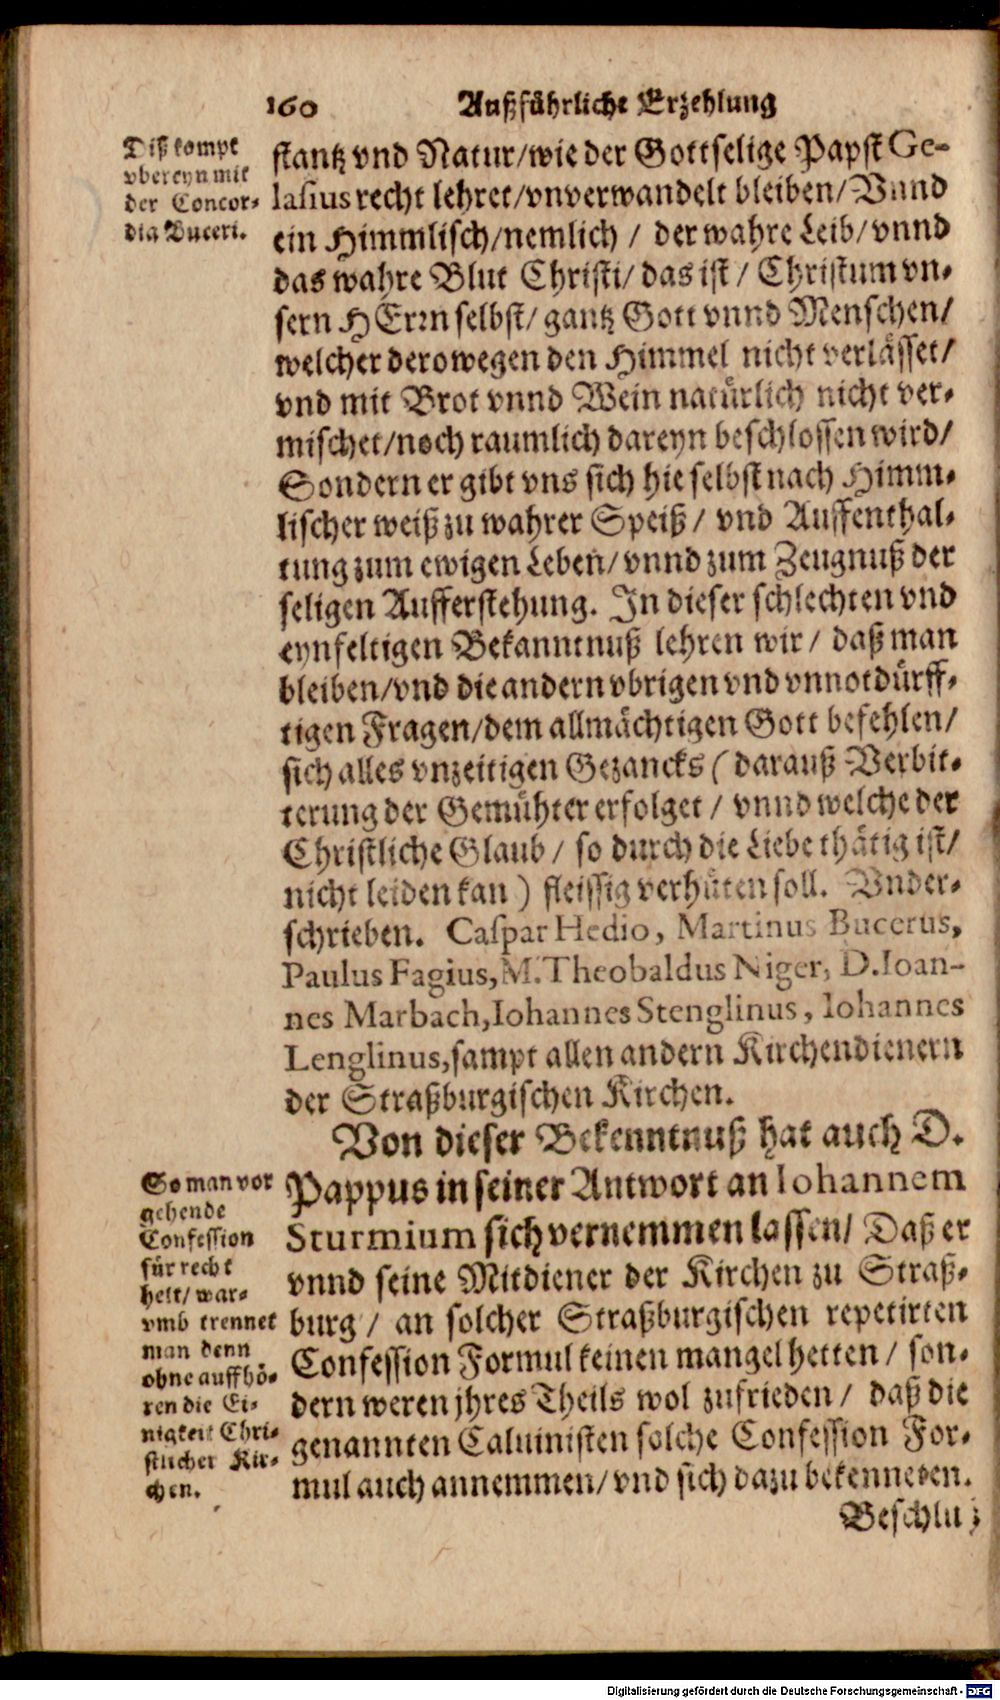 160 Außführliche Erzehlung
Diß kompt
vbereyn mit
der Concor-
dia Buceri.
stantz vnd Natur/wie der Gottselige Papst Ge-
lasius recht lehret/vnverwandelt bleiben/Vnnd
ein Himmlisch/nemlich / der wahre Leib/vnnd
das wahre Blut Christi/das ist / Christum vn-
sern HErrn selbst/gantz Gott vnnd Menschen/
welcher derowegen den Himmel nicht verlässet/
vnd mit Brot vnnd Wein natürlich nicht ver-
mischet/noch raumlich dareyn beschlossen wird/
Sondern er gibt vns sich hie selbst nach Himm-
lischer weiß zu wahrer Speiß / vnd Auffenthal-
tung zum ewigen Leben/vnnd zum Zeugnuß der
seligen Aufferstehung. In dieser schlechten vnd
eynfeltigen Bekanntnuß lehren wir / daß man
bleiben/vnd die andern vbrigen vnd vnnotdürff-
tigen Fragen/dem allmächtigen Gott befehlen/
sich alles vnzeitigen Gezancks ( darauß Verbit-
terung der Gemühter erfolget / vnnd welche der
Christliche Glaub / so durch die Liebe thätig ist/
nicht leiden kan ) fleissig verhüten soll. Vnder-
schrieben. Caspar Hedio, Martinus Bucerus,
Paulus Fagius, M. Theobaldus Niger, D. Ioan-
nes Marbach, Iohannes Stenglinus, Iohannes
Lenglinus, sampt allen andern Kirchendienern
der Straßburgischen Kirchen.
Von dieser Bekenntnuß hat auch D.
Pappus in seiner Antwort an Iohannem
Sturmium sich vernemmen lassen/ Daß er
vnnd seine Mitdiener der Kirchen zu Straß-
burg / an solcher Straßburgischen repetirten
Confession Formul keinen mangel hetten / son-
dern weren jhres Theils wol zufrieden / daß die
genannten Caluinisten solche Confession For-
mul auch annemmen/vnd sich dazu bekenneten.
So man vor
gehende
Confession
für recht
helt/ war-
vmb trennet
man denn
ohne auffhö-
ren die Ei-
nigkeit Chri-
stlicher Kir-
chen.
Beschlu
Digitalisierung gefördert durch die Deutsche Forschungsgemeinschaft - DFG